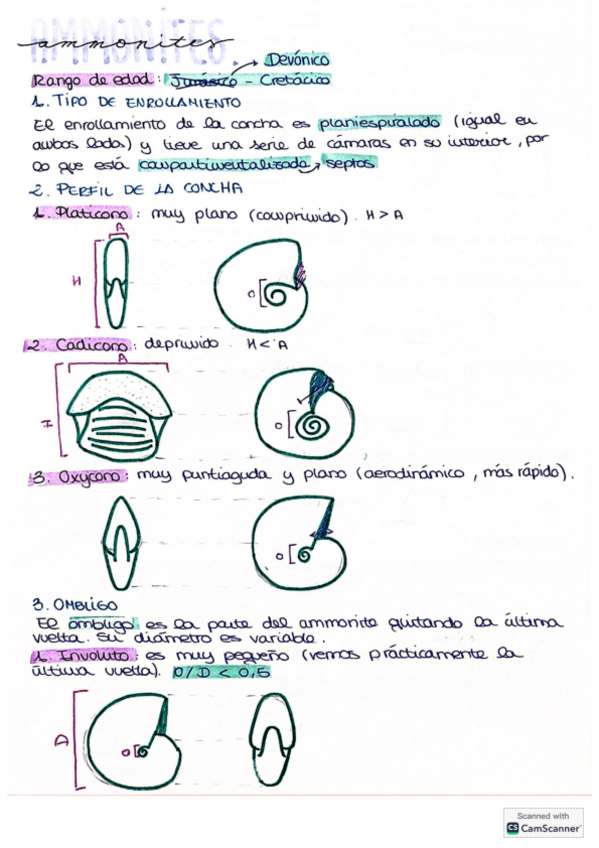 AMMONITES
ammonites
Devónico
Rango de edad : Jurásico - Cretácico
1. TIPO DE ENROLLAMIENTO
El enrollamiento de la concha es planiespiralado (igual en
ambos lados) y tiene una serie de cámaras en su interior, por
lo que está compartimentalizada → septos
2. PERFIL DE LA CONCHA
1. Platicono : muy plano (comprimido). H > A
A
H
O
2. Cadicono : deprimido. H < A
A
H
O
3. Oxycono : muy puntiaguda y plano (aerodinámico, más rápido).
O
3. OMBLIGO
El ombligo es la parte del ammonite quitando la última
vuelta. Su diámetro es variable.
1. Involuto : es muy pequeño (vemos prácticamente la
última vuelta). O/D < 0,5
D
O
Scanned with
CS CamScanner